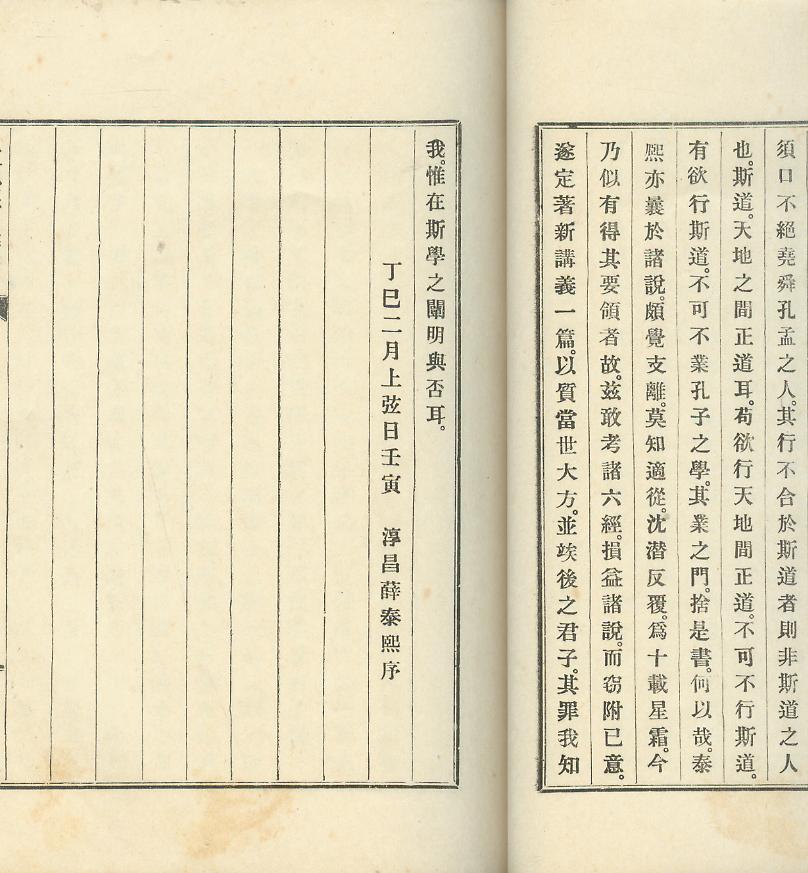 須口不絕堯舜孔孟之人。其行不合於斯道者則非斯道之人
也。斯道。天地之間正道耳。苟欲行天地間正道。不可不行斯道。
有欲行斯道。不可不業孔子之學。其業之門。捨是書。何以哉。泰
熙亦曩於諸說。頗覺支離。莫知適從。沈潛反覆。爲十載星霜。今
乃似有得其要領者故。玆敢考諸六經。損益諸說。而窃附已意。
遂定著新講義一篇。以質當世大方。並竢後之君子。其罪我知
我。惟在斯學之闡明與否耳。
丁巳二月上弦日壬寅 淳昌薛泰熙序